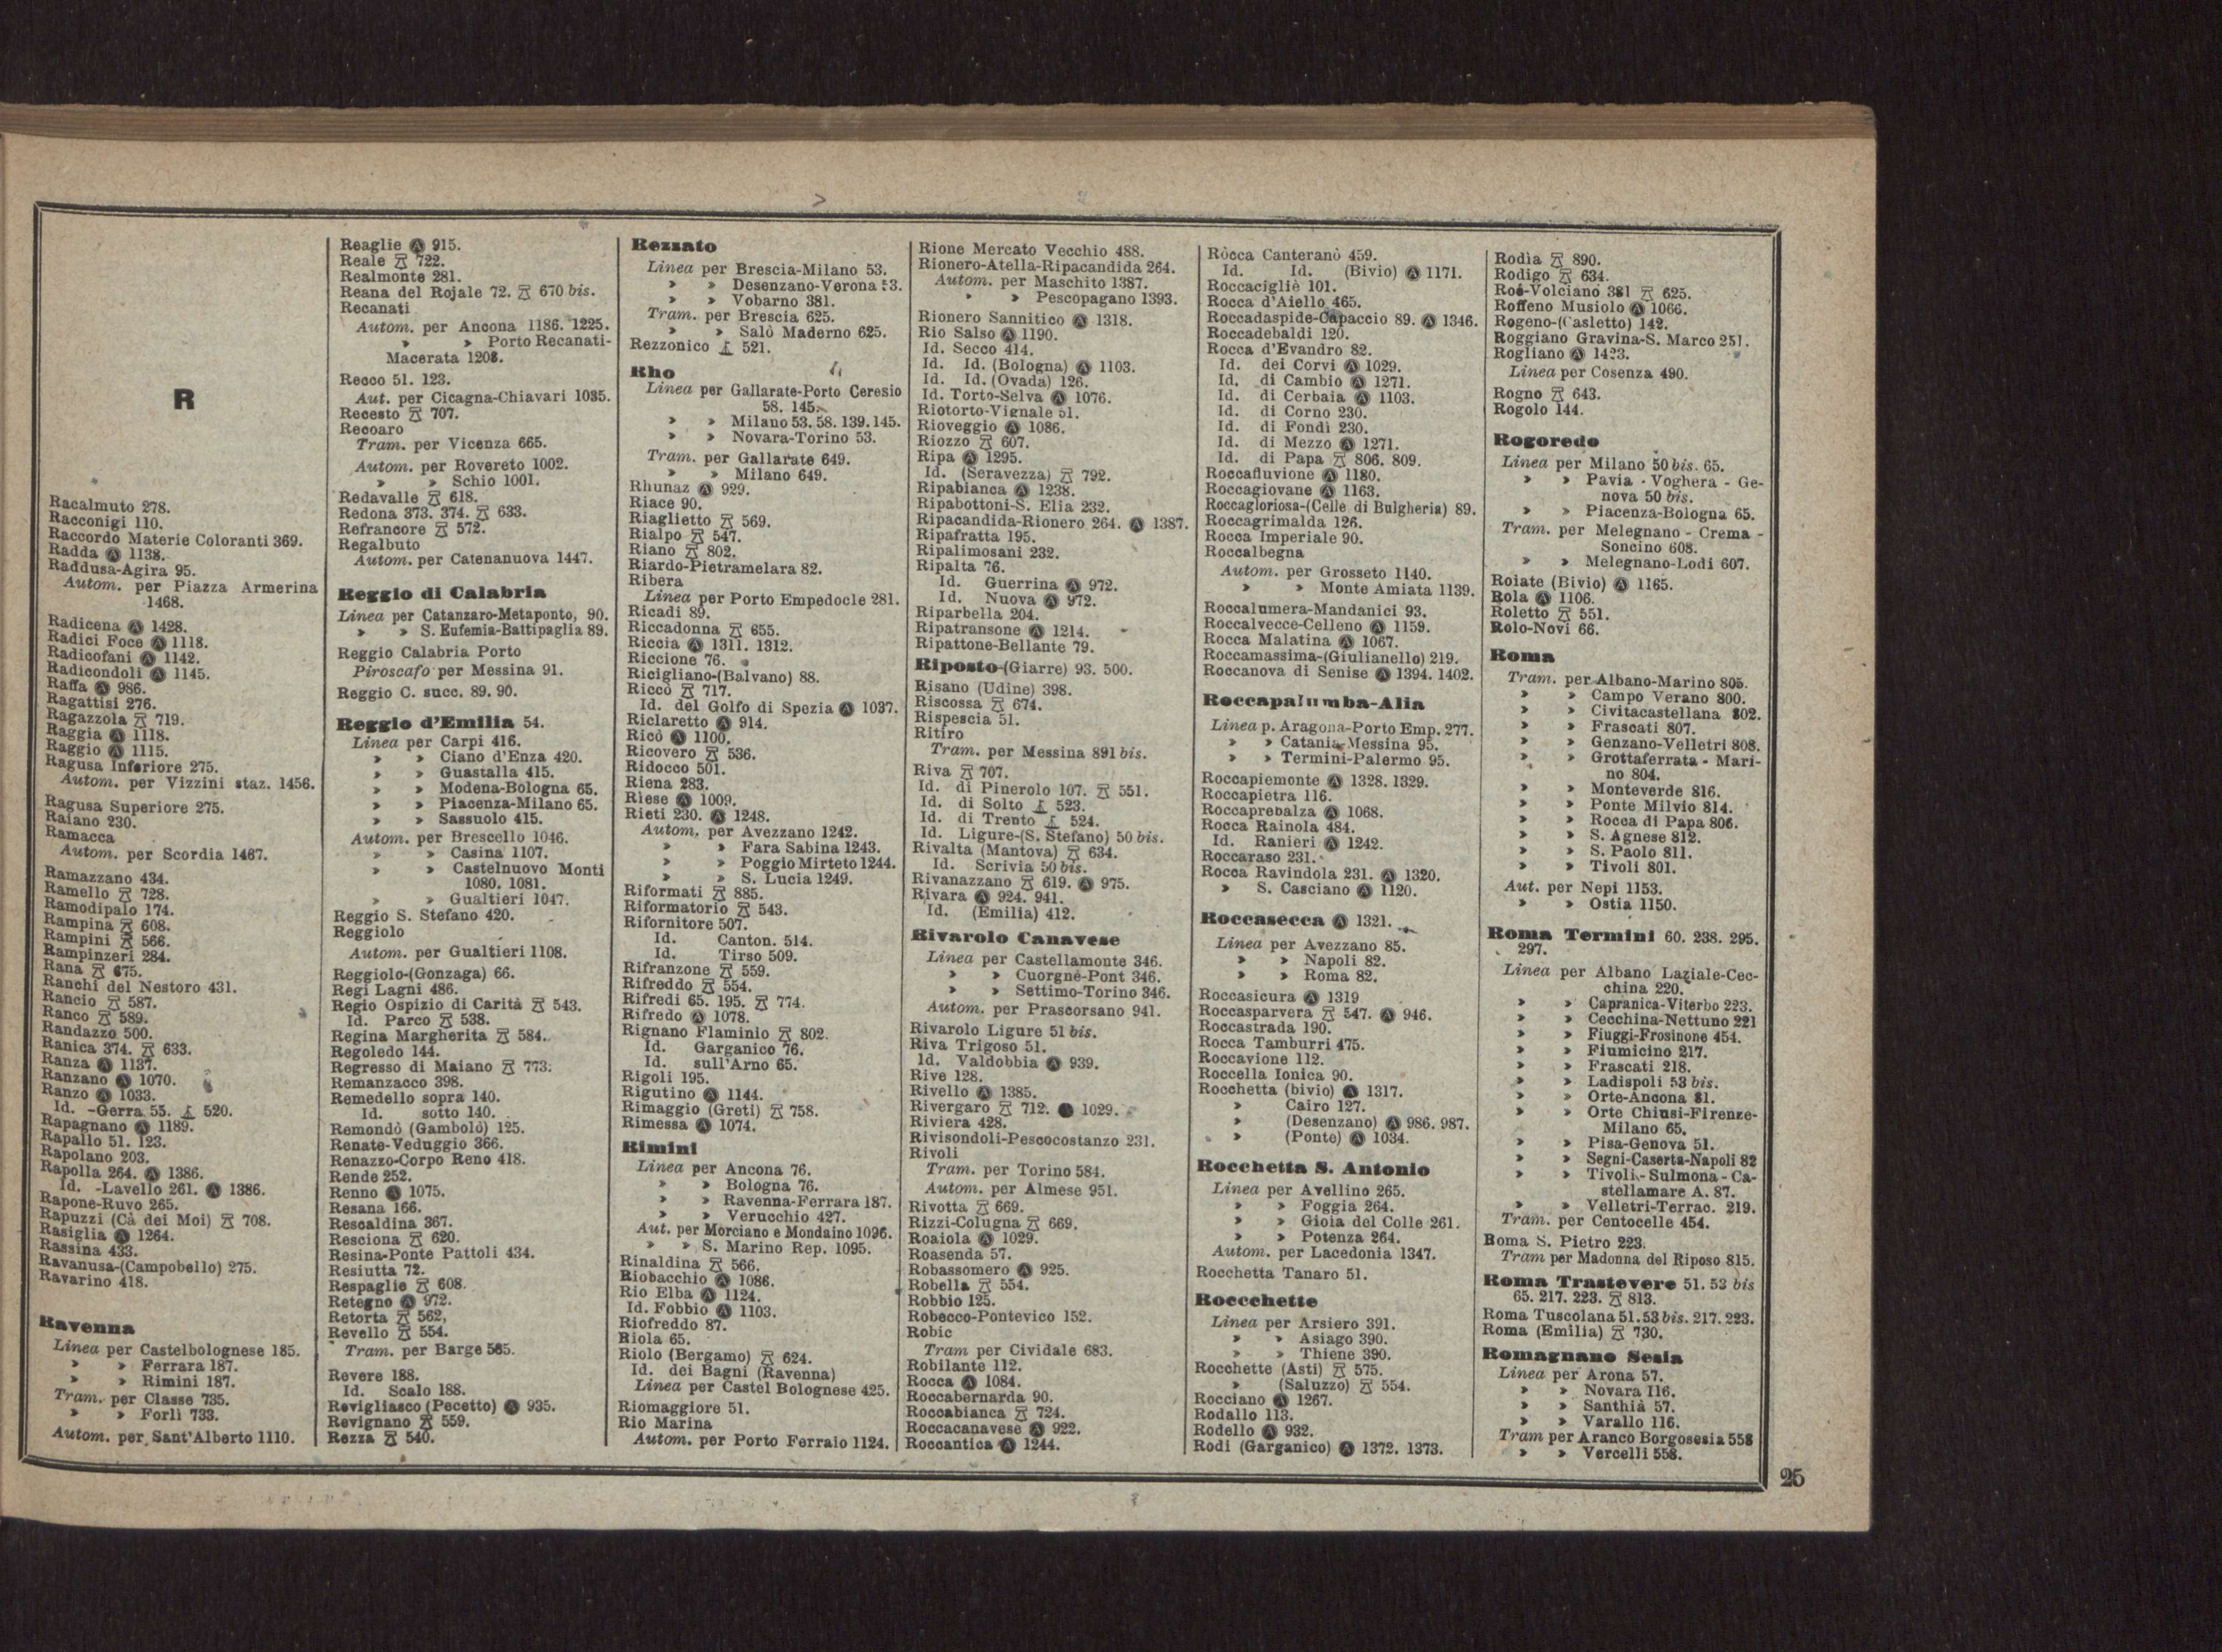 R
Racalmuto 278.
Racconigi 110.
Raccordo Materie Coloranti 369.
Radda Ⓐ 1138.
Raddusa-Agira 95.
Autom. per Piazza Armerina
1468.
Radicena Ⓐ 1428.
Radici Foce Ⓐ 1118.
Radicofani Ⓐ 1142.
Radicondoli Ⓐ 1145.
Raffa Ⓐ 986.
Ragattisi 276.
Ragazzola 719.
Raggia Ⓐ 1118.
Raggio Ⓐ 1115.
Ragusa Inferiore 275.
Autom. per Vizzini staz. 1456.
Ragusa Superiore 275.
Raiano 230.
Ramacca
Autom. per Scordia 1467.
Ramazzano 434.
Ramello 728.
Ramodipalo 174.
Rampina 608.
Rampini 566.
Rampinzeri 284.
Rana 675.
Ranchi del Nestoro 431.
Rancio 587.
Ranco 589.
Randazzo 500.
Ranica 374. 633.
Ranza Ⓐ 1137.
Ranzano Ⓐ 1070.
Ranzo Ⓐ 1033.
Id. -Gerra 55. 520.
Rapagnano Ⓐ 1189.
Rapallo 51. 123.
Rapolano 203.
Rapolla 264. Ⓐ 1386.
Id. -Lavello 261. Ⓐ 1386.
Rapone-Ruvo 265.
Rapuzzi (Cà dei Moi) 708.
Rasiglia Ⓐ 1264.
Rassina 433.
Ravanusa-(Campobello) 275.
Ravarino 418.
Ravenna
Linea per Castelbolognese 185.
» » Ferrara 187.
» » Rimini 187.
Tram. per Classe 735.
» » Forlì 733.
Autom. per Sant'Alberto 1110.
Reaglie Ⓐ 915.
Reale 722.
Realmonte 281.
Reana del Rojale 72. 670 bis.
Recanati
Autom. per Ancona 1186. 1225.
» » Porto Recanati-
Macerata 1208.
Recco 51. 123.
Aut. per Cicagna-Chiavari 1035.
Recesto 707.
Recoaro
Tram. per Vicenza 665.
Autom. per Rovereto 1002.
» » Schio 1001.
Redavalle 618.
Redona 373. 374. 633.
Refrancore 572.
Regalbuto
Autom. per Catenanuova 1447.
Reggio di Calabria
Linea per Catanzaro-Metaponto, 90.
» » S. Eufemia-Battipaglia 89.
Reggio Calabria Porto
Piroscafo per Messina 91.
Reggio C. succ. 89. 90.
Reggio d'Emilia 54.
Linea per Carpi 416.
» » Ciano d'Enza 420.
» » Guastalla 415.
» » Modena-Bologna 65.
» » Piacenza-Milano 65.
» » Sassuolo 415.
Autom. per Brescello 1046.
» » Casina 1107.
» » Castelnuovo Monti
1080. 1081.
» » Gualtieri 1047.
Reggio S. Stefano 420.
Reggiolo
Autom. per Gualtieri 1108.
Reggiolo-(Gonzaga) 66.
Regi Lagni 486.
Regio Ospizio di Carità 543.
Id. Parco 538.
Regina Margherita 584.
Regoledo 144.
Regresso di Maiano 773.
Remanzacco 398.
Remedello sopra 140.
Id. sotto 140.
Remondò (Gambolò) 125.
Renate-Veduggio 366.
Renazzo-Corpo Reno 418.
Rende 252.
Renno Ⓐ 1075.
Resana 166.
Rescaldina 367.
Resciona 620.
Resina-Ponte Pattoli 434.
Resiutta 72.
Respaglie 608.
Retegno Ⓐ 972.
Retorta 562,
Revello 554.
Tram. per Barge 565.
Revere 188.
Id. Scalo 188.
Revigliasco (Pecetto) Ⓐ 935.
Revignano 559.
Rezza 540.
Rezzato
Linea per Brescia-Milano 53.
» » Desenzano-Verona 53.
» » Vobarno 381.
Tram. per Brescia 625.
» » Salò Maderno 625.
Rezzonico 521.
Rho
Linea per Gallarate-Porto Ceresio
58. 145.
» » Milano 53. 58. 139. 145.
» » Novara-Torino 53.
Tram. per Gallarate 649.
» » Milano 649.
Rhunaz Ⓐ 929.
Riace 90.
Riaglietto 569.
Rialpo 547.
Riano 802.
Riardo-Pietramelara 82.
Ribera
Linea per Porto Empedocle 281.
Ricadi 89.
Riccadonna 655.
Riccia Ⓐ 1311. 1312.
Riccione 76.
Ricigliano-(Balvano) 88.
Riccò 717.
Id. del Golfo di Spezia Ⓐ 1037.
Riclaretto Ⓐ 914.
Ricò Ⓐ 1100.
Ricovero 536.
Ridocco 501.
Riena 283.
Riese Ⓐ 1009.
Rieti 230. Ⓐ 1248.
Autom. per Avezzano 1242.
» » Fara Sabina 1243.
» » Poggio Mirteto 1244.
» » S. Lucia 1249.
Riformati 885.
Riformatorio 543.
Rifornitore 507.
Id. Canton. 514.
Id. Tirso 509.
Rifranzone 559.
Rifreddo 554.
Rifredi 65. 195. 774.
Rifredo Ⓐ 1078.
Rignano Flaminio 802.
Id. Garganico 76.
Id. sull'Arno 65.
Rigoli 195.
Rigutino Ⓐ 1144.
Rimaggio (Greti) 758.
Rimessa Ⓐ 1074.
Rimini
Linea per Ancona 76.
» » Bologna 76.
» » Ravenna-Ferrara 187.
» » Verucchio 427.
Aut. per Morciano e Mondaino 1096.
» » S. Marino Rep. 1095.
Rinaldina 566.
Riobacchio Ⓐ 1086.
Rio Elba Ⓐ 1124.
Id. Fobbio Ⓐ 1103.
Riofreddo 87.
Riola 65.
Riolo (Bergamo) 624.
Id. dei Bagni (Ravenna)
Linea per Castel Bolognese 425.
Riomaggiore 51.
Rio Marina
Autom. per Porto Ferraio 1124.
Rione Mercato Vecchio 488.
Rionero-Atella-Ripacandida 264.
Autom. per Maschito 1387.
» » Pescopagano 1393.
Rionero Sannitico Ⓐ 1318.
Rio Salso Ⓐ 1190.
Id. Secco 414.
Id. Id. (Bologna) Ⓐ 1103.
Id. Id. (Ovada) 126.
Id. Torto-Selva Ⓐ 1076.
Riotorto-Vignale 51.
Rioveggio Ⓐ 1086.
Riozzo 607.
Ripa Ⓐ 1295.
Id. (Seravezza) 792.
Ripabianca Ⓐ 1238.
Ripabottoni-S. Elia 232.
Ripacandida-Rionero 264. Ⓐ 1387.
Ripafratta 195.
Ripalimosani 232.
Ripalta 76.
Id. Guerrina Ⓐ 972.
Id. Nuova Ⓐ 972.
Riparbella 204.
Ripatransone Ⓐ 1214.
Ripattone-Bellante 79.
Riposto-(Giarre) 93. 500.
Risano (Udine) 398.
Riscossa 674.
Rispescia 51.
Ritiro
Tram. per Messina 891 bis.
Riva 707.
Id. di Pinerolo 107. 551.
Id. di Solto 523.
Id. di Trento 524.
Id. Ligure-(S. Stefano) 50 bis.
Rivalta (Mantova) 634.
Id. Scrivia 50 bis.
Rivanazzano 619. Ⓐ 975.
Rivara Ⓐ 924. 941.
Id. (Emilia) 412.
Rivarolo Canavese
Linea per Castellamonte 346.
» » Cuorgnè-Pont 346.
» » Settimo-Torino 346.
Autom. per Prascorsano 941.
Rivarolo Ligure 51 bis.
Riva Trigoso 51.
Id. Valdobbia Ⓐ 939.
Rive 128.
Rivello Ⓐ 1385.
Rivergaro 712. Ⓐ 1029.
Riviera 428.
Rivisondoli-Pescocostanzo 231.
Rivoli
Tram. per Torino 584.
Autom. per Almese 951.
Rivotta 669.
Rizzi-Colugna 669.
Roaiola Ⓐ 1029.
Roasenda 57.
Robassomero Ⓐ 925.
Robella 554.
Robbio 125.
Robecco-Pontevico 152.
Robic
Tram per Cividale 683.
Robilante 112.
Rocca Ⓐ 1084.
Roccabernarda 90.
Roccabianca 724.
Roccacanavese Ⓐ 922.
Roccantica Ⓐ 1244.
Ròcca Canteranò 459.
Id. Id. (Bivio) Ⓐ 1171.
Roccacigliè 101.
Rocca d'Aiello 465.
Roccadaspide-Capaccio 89. Ⓐ 1346.
Roccadebaldi 120.
Rocca d'Evandro 82.
Id. dei Corvi Ⓐ 1029.
Id. di Cambio Ⓐ 1271.
Id. di Cerbaia Ⓐ 1103.
Id. di Corno 230.
Id. di Fondi 230.
Id. di Mezzo Ⓐ 1271.
Id. di Papa 806. 809.
Roccafluvione Ⓐ 1180.
Roccagiovane Ⓐ 1163.
Roccagloriosa-(Celle di Bulgheria) 89.
Roccagrimalda 126.
Rocca Imperiale 90.
Roccalbegna
Autom. per Grosseto 1140.
» » Monte Amiata 1139.
Roccalumera-Mandanici 93.
Roccalvecce-Celleno Ⓐ 1159.
Rocca Malatina Ⓐ 1067.
Roccamassima-(Giulianello) 219.
Roccanova di Senise Ⓐ 1394. 1402.
Roccapalumba-Alia
Linea p. Aragona-Porto Emp. 277.
» » Catania-Messina 95.
» » Termini-Palermo 95.
Roccapiemonte Ⓐ 1328. 1329.
Roccapietra 116.
Roccaprebalza Ⓐ 1068.
Rocca Rainola 484.
Id. Ranieri Ⓐ 1242.
Roccaraso 231.
Rocca Ravindola 231. Ⓐ 1320.
» S. Casciano Ⓐ 1120.
Roccasecca Ⓐ 1321.
Linea per Avezzano 85.
» » Napoli 82.
» » Roma 82.
Roccasicura Ⓐ 1319
Roccasparvera 547. Ⓐ 946.
Roccastrada 190.
Rocca Tamburri 475.
Roccavione 112.
Roccella Ionica 90.
Rocchetta (bivio) Ⓐ 1317.
» Cairo 127.
» (Desenzano) Ⓐ 986. 987.
» (Ponte) Ⓐ 1034.
Rocchetta S. Antonio
Linea per Avellino 265.
» » Foggia 264.
» » Gioia del Colle 261.
» » Potenza 264.
Autom. per Lacedonia 1347.
Rocchetta Tanaro 51.
Roccchette
Linea per Arsiero 391.
» » Asiago 390.
» » Thiene 390.
Rocchette (Asti) 575.
» (Saluzzo) 554.
Rocciano Ⓐ 1267.
Rodallo 113.
Rodello Ⓐ 932.
Rodi (Garganico) Ⓐ 1372. 1373.
Rodìa 890.
Rodigo 634.
Roè-Volciano 381 625.
Roffeno Musiolo Ⓐ 1066.
Rogeno-(Casletto) 142.
Roggiano Gravina-S. Marco 251.
Rogliano Ⓐ 1423.
Linea per Cosenza 490.
Rogno 643.
Rogolo 144.
Rogoredo
Linea per Milano 50 bis. 65.
» » Pavia - Voghera - Ge-
nova 50 bis.
» » Piacenza-Bologna 65.
Tram. per Melegnano - Crema -
Soncino 608.
» » Melegnano-Lodi 607.
Roiate (Bivio) Ⓐ 1165.
Rola Ⓐ 1106.
Roletto 551.
Rolo-Novi 66.
Roma
Tram. per Albano-Marino 805.
» » Campo Verano 800.
» » Civitacastellana 802.
» » Frascati 807.
» » Genzano-Velletri 808.
» » Grottaferrata - Mari-
no 804.
» » Monteverde 816.
» » Ponte Milvio 814.
» » Rocca di Papa 806.
» » S. Agnese 812.
» » S. Paolo 811.
» » Tivoli 801.
Aut. per Nepi 1153.
» » Ostia 1150.
Roma Termini 60. 238. 295.
297.
Linea per Albano Laziale-Cec-
china 220.
» » Capranica-Viterbo 223.
» » Cecchina-Nettuno 221
» » Fiuggi-Frosinone 454.
» » Fiumicino 217.
» » Frascati 218.
» » Ladispoli 53 bis.
» » Orte-Ancona 81.
» » Orte Chiusi-Firenze-
Milano 65.
» » Pisa-Genova 51.
» » Segni-Caserta-Napoli 82
» » Tivoli-Sulmona - Ca-
stellamare A. 87.
» » Velletri-Terrac. 219.
Tram. per Centocelle 454.
Roma S. Pietro 223.
Tram per Madonna del Riposo 815.
Roma Trastevere 51. 53 bis
65. 217. 223. 813.
Roma Tuscolana 51. 53 bis. 217. 223.
Roma (Emilia) 730.
Romagnano Sesia
Linea per Arona 57.
» » Novara 116.
» » Santhià 57.
» » Varallo 116.
Tram per Aranco Borgosesia 558
» » Vercelli 558.
25